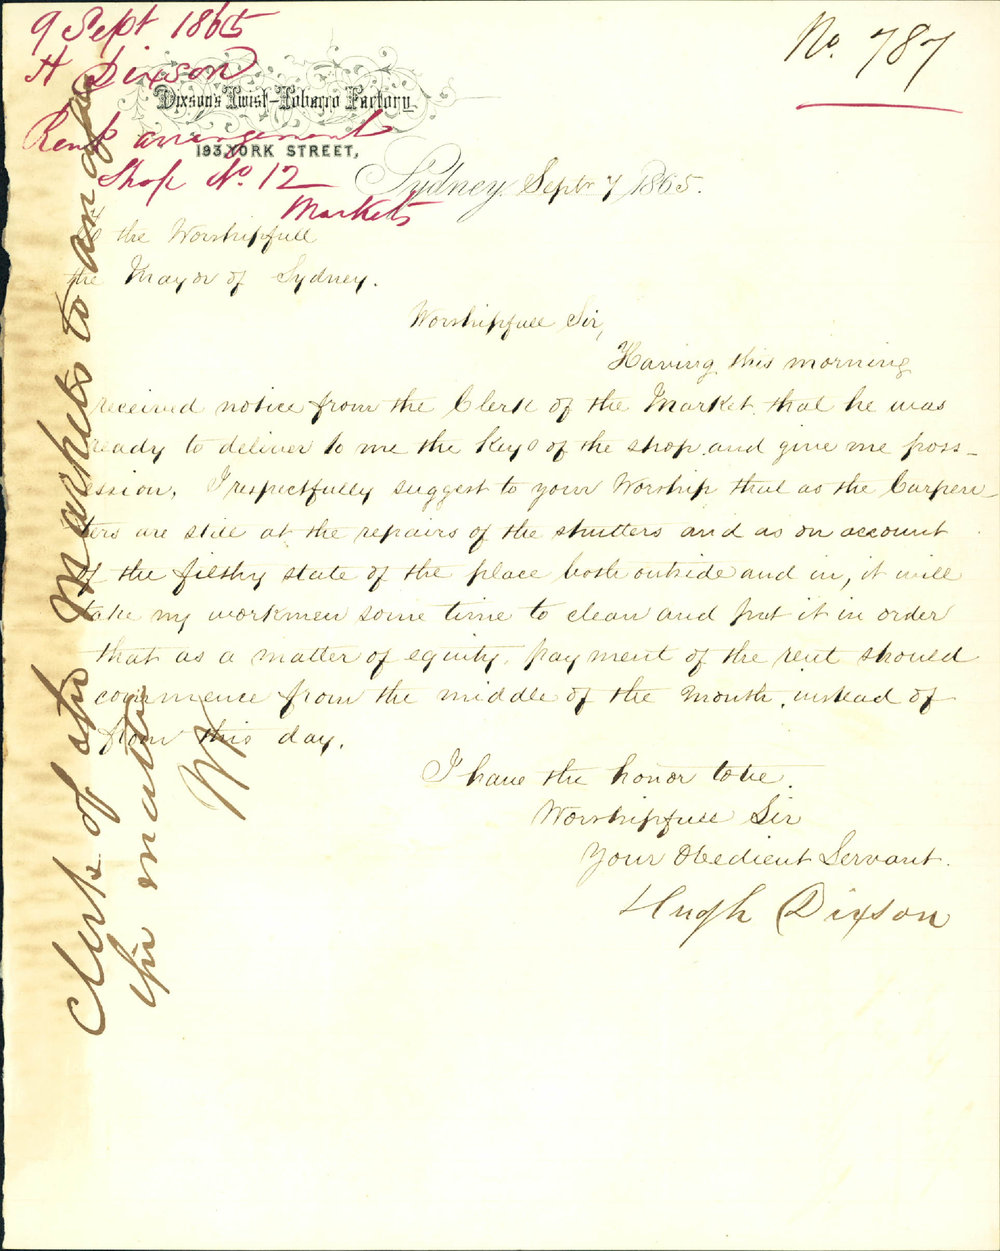 9 Sept 1865
H Dixson
Rent arrangement
Shop No. 12
Markets
No. 787
Dixson's Twist-Tobacco Factory
193, YORK STREET,
Sydney, Septr 7 1865.
To the Worshipfull
the Mayor of Sydney.
Worshipfull Sir,
Having this morning
received notice from the Clerk of the Market that he was
ready to deliver to me the keys of the shop and give me poss-
ession, I respectfully suggest to your Worship that as the Carpen-
ters are still at the repairs of the shutters and as on account
of the filthy state of the place both outside and in, it will
take my workmen some time to clean and put it in order
that as a matter of equity, payment of the rent should
commence from the middle of the month, instead of
from this day.
I have the honor to be
Worshipfull Sir
Your Obedient Servant.
Hugh Dixson
Clerk of the Markets to